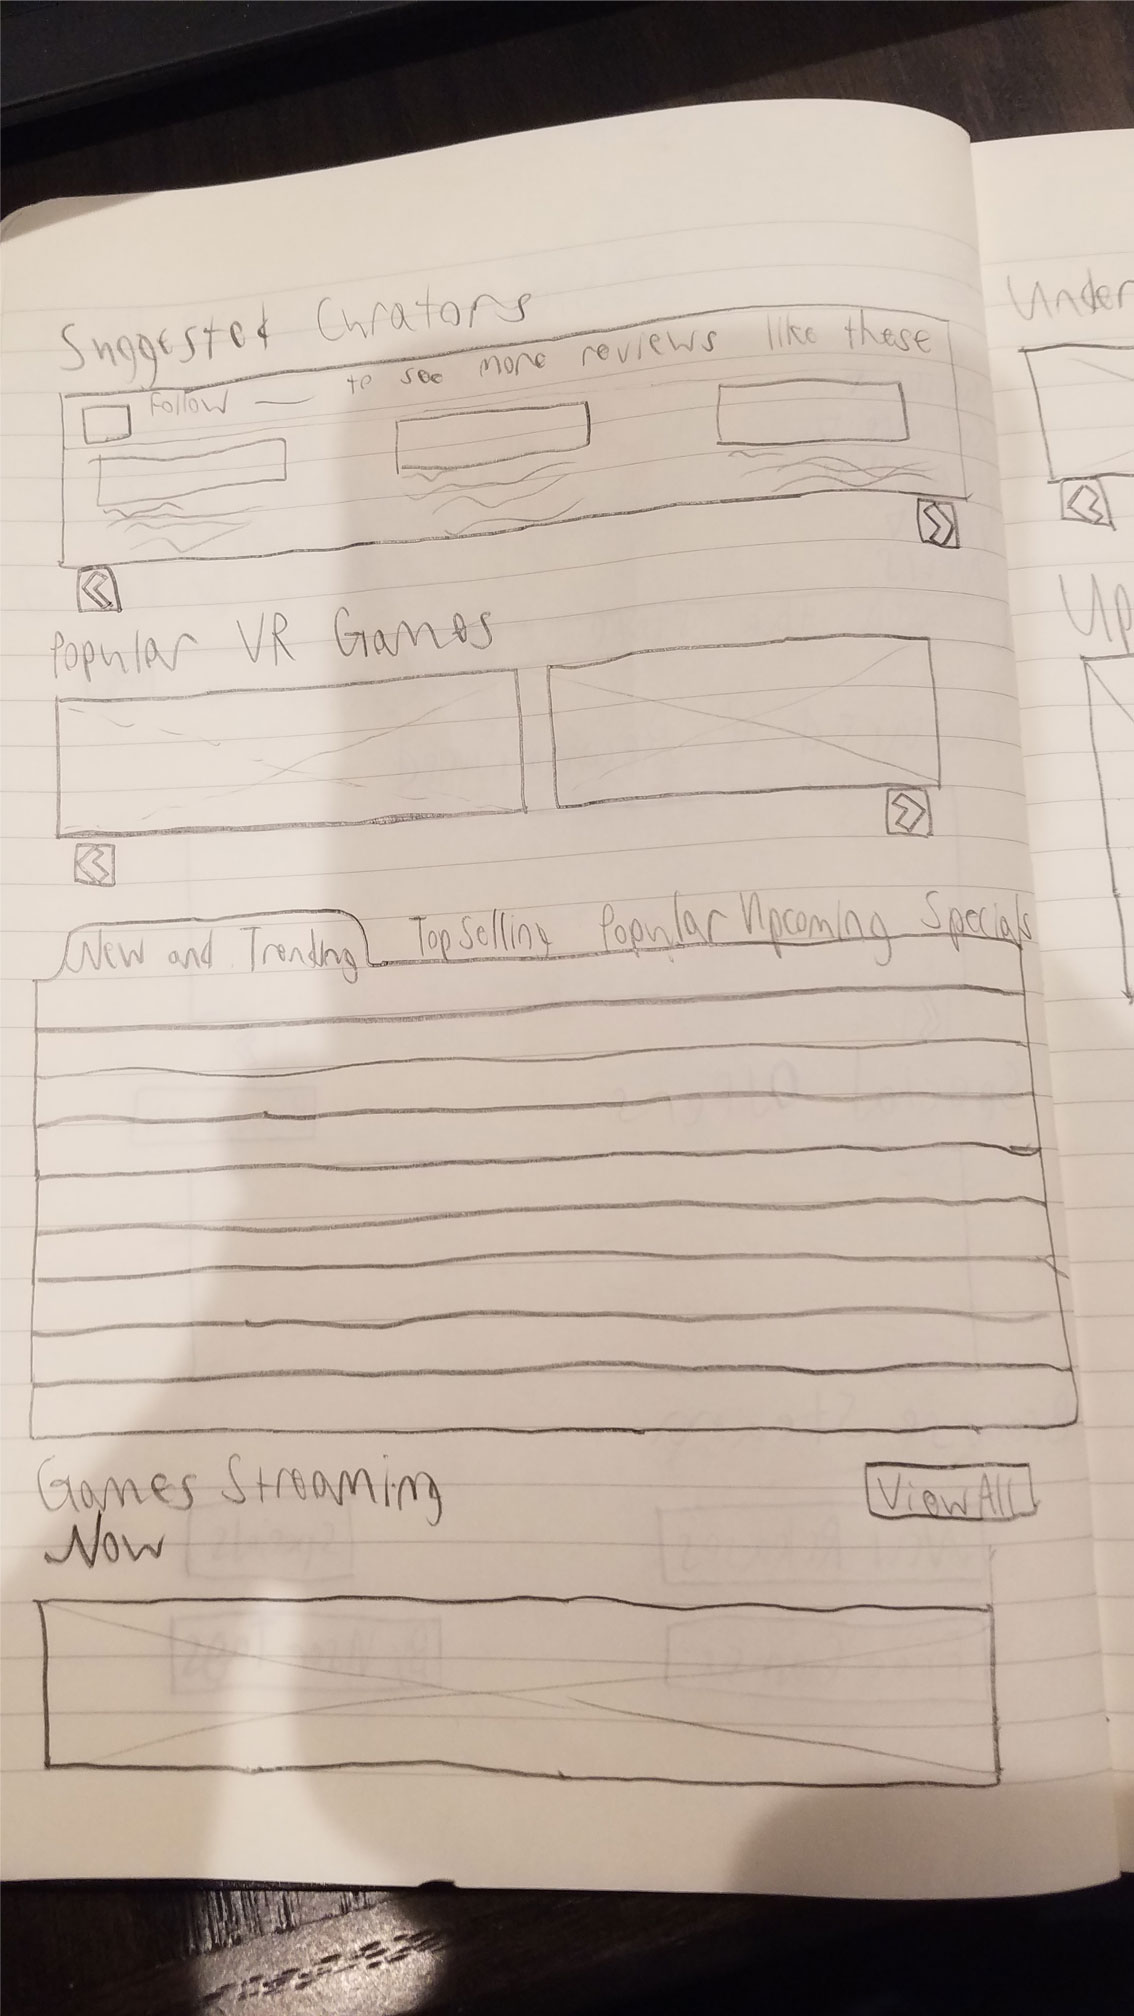 Suggested Curators
Follow — to see more reviews like these
Popular VR Games
New and Trending Top Selling Popular Upcoming Specials
Games Streaming
Now
View All
Under
Up